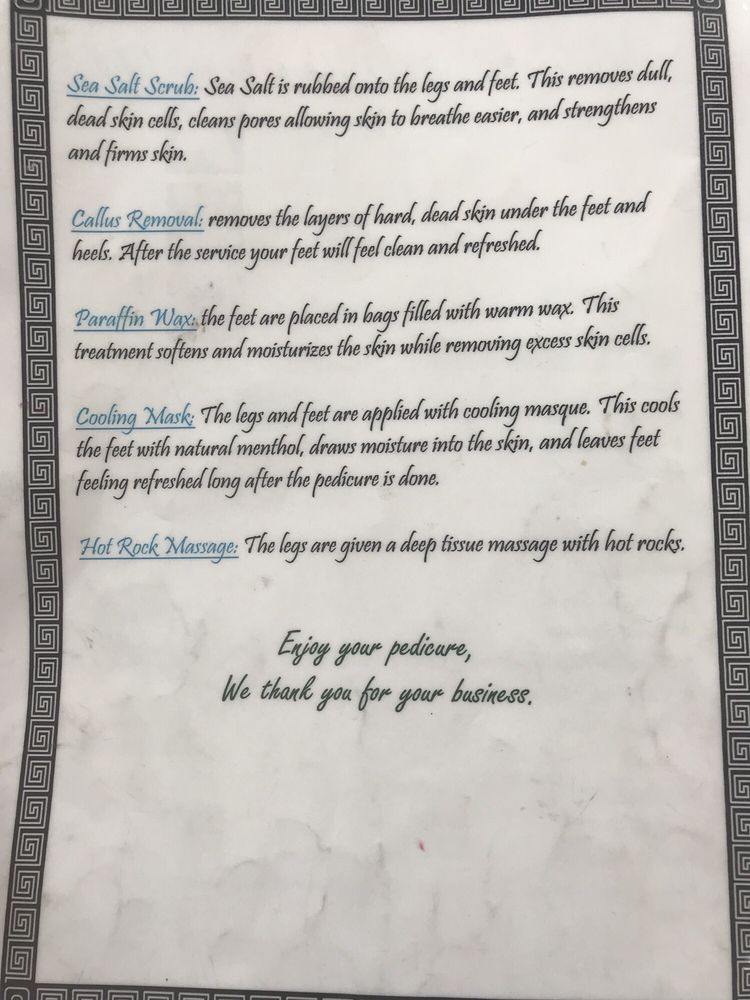 Sea Salt Scrub: Sea Salt is rubbed onto the legs and feet. This removes dull,
dead skin cells, cleans pores allowing skin to breathe easier, and strengthens
and firms skin.
Callus Removal: removes the layers of hard, dead skin under the feet and
heels. After the service your feet will feel clean and refreshed.
Paraffin Wax: the feet are placed in bags filled with warm wax. This
treatment softens and moisturizes the skin while removing excess skin cells.
Cooling Mask: The legs and feet are applied with cooling masque. This cools
the feet with natural menthol, draws moisture into the skin, and leaves feet
feeling refreshed long after the pedicure is done.
Hot Rock Massage: The legs are given a deep tissue massage with hot rocks.
Enjoy your pedicure,
We thank you for your business.